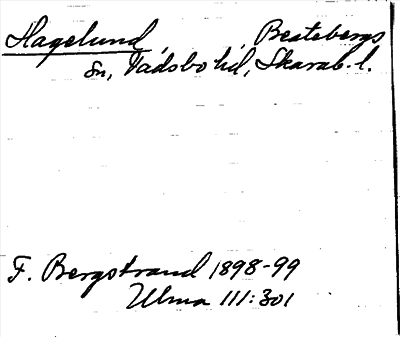 Hagelund Beatebergs
sn, Vadsbo hd, Skarab. l.
F. Bergstrand 1898-99
Ulma 111:301